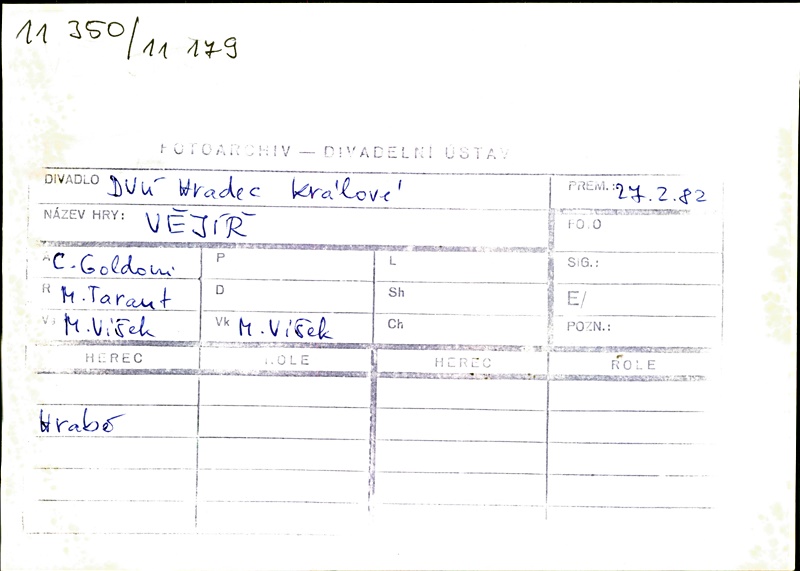 11 350/11 179
FOTOARCHIV — DIVADELNÍ ÚSTAV
DIVADLO DVÚ Hradec Králové PREM.: 27.2.82
NÁZEV HRY: VĚJÍŘ FOTO
A C. Goldoni P L SIG.:
R M. Tarant D Sh E/
V M. Víšek Vk M. Víšek Ch POZN.:
HEREC ROLE HEREC ROLE